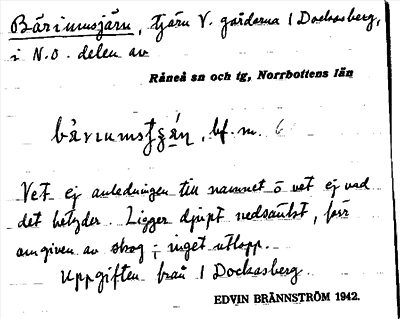 Bärimusjärn, tjärn V. gårdarna 1 Dockasberg,
i N.O. delen av
Råneå sn och tg, Norrbottens län
bf. m.
Vet ej anledningen till namnet o vet ej vad
det betyder. Ligger djupt nedsänkt, för
omgiven av skog; inget utlopp.
Uppgiften från 1 Dockasberg.
EDVIN BRÄNNSTRÖM 1942.